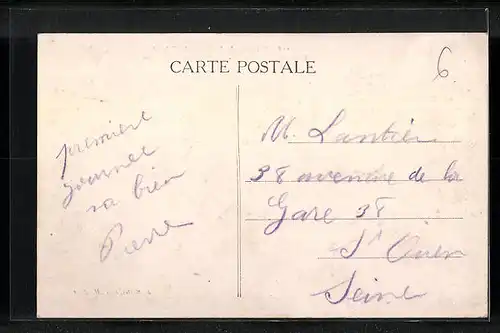 CARTE POSTALE
6
première
journée
va bien
Pierre
M. Lantier
38 avenue de la
Gare 38
St Ouen
Seine